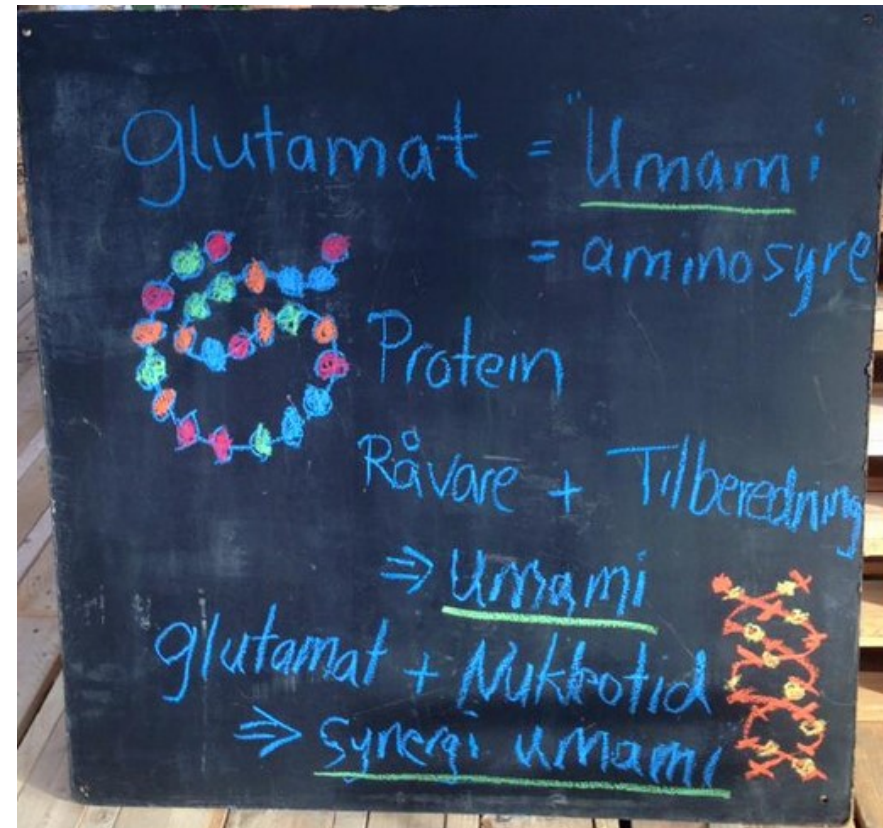 glutamat = "Umami"
= aminosyre
Protein
Råvare + Tilberedning
⇒ Umami
glutamat + Nukleotid
⇒ Synergi umami